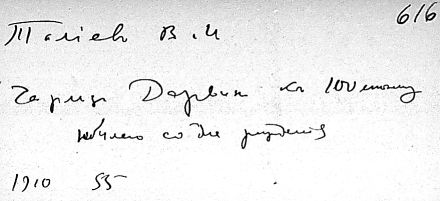 616
Талиев В. И
Чарльз Дарвин к 100летнему
юбилею со дня рождения
1910 55